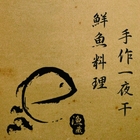 手作一夜干
鮮魚料理